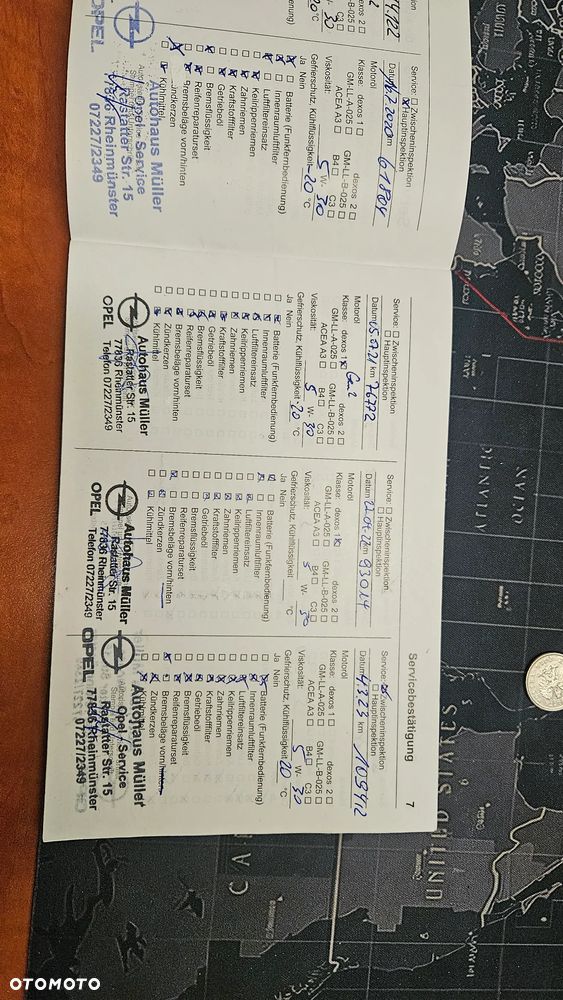 Servicebestätigung 7
4.122
dexos 2
GM-LL-B-025
C3
30
20 °C
Service: Zwischeninspektion
Hauptinspektion
Datum 16.7.2020 km 61804
Motoröl
Klasse: dexos 1 dexos 2
GM-LL-A-025 GM-LL-B-025
ACEA A3 B4 C3
Viskosität: 5 W- 30
Gefrierschutz, Kühlflüssigkeit -20 °C
Ja Nein
Batterie (Funkfernbedienung)
Innenraumluftfilter
Luftfiltereinsatz
Keilrippenriemen
Zahnriemen
Kraftstofffilter
Getriebeöl
Bremsflüssigkeit
Reifenreparaturset
Bremsbeläge vorn/hinten
Zündkerzen
Kühlmittel
Autohaus Müller
Opel Service
Rastatter Str. 15
77836 Rheinmünster
07227/2349
OPEL
Service: Zwischeninspektion
Hauptinspektion
Datum 05.07.21 km 76772
Motoröl
Klasse: dexos 1 Gen2 dexos 2
GM-LL-A-025 GM-LL-B-025
ACEA A3 B4 C3
Viskosität: 5 W- 30
Gefrierschutz, Kühlflüssigkeit -20 °C
Ja Nein
Batterie (Funkfernbedienung)
Innenraumluftfilter
Luftfiltereinsatz
Keilrippenriemen
Zahnriemen
Kraftstofffilter
Getriebeöl
Bremsflüssigkeit
Reifenreparaturset
Bremsbeläge vorn/hinten
Zündkerzen
Kühlmittel
Autohaus Müller
Rastatter Str. 15
77836 Rheinmünster
Telefon 07227/2349
OPEL
Service: Zwischeninspektion
Hauptinspektion
Datum km 93014
Motoröl
Klasse: dexos 1 dexos 2
GM-LL-A-025 GM-LL-B-025
ACEA A3 B4 C3
Viskosität: 5 W- 30
Gefrierschutz, Kühlflüssigkeit °C
Ja Nein
Batterie (Funkfernbedienung)
Innenraumluftfilter
Luftfiltereinsatz
Keilrippenriemen
Zahnriemen
Kraftstofffilter
Getriebeöl
Bremsflüssigkeit
Reifenreparaturset
Bremsbeläge vorn/hinten
Zündkerzen
Kühlmittel
Autohaus Müller
Rastatter Str. 15
77836 Rheinmünster
Telefon 07227/2349
OPEL
Service: Zwischeninspektion
Hauptinspektion
Datum 4.3.23 km 109412
Motoröl
Klasse: dexos 1 dexos 2
GM-LL-A-025 GM-LL-B-025
ACEA A3 B4 C3
Viskosität: 5 W- 30
Gefrierschutz, Kühlflüssigkeit 20 °C
Ja Nein
Batterie (Funkfernbedienung)
Innenraumluftfilter
Luftfiltereinsatz
Keilrippenriemen
Zahnriemen
Kraftstofffilter
Getriebeöl
Bremsflüssigkeit
Reifenreparaturset
Bremsbeläge vorn/hinten
Zündkerzen
Kühlmittel
Autohaus Müller
Opel Service
Rastatter Str. 15
77836 Rheinmünster
07227/2349
OPEL
UNITED STATES
OTOMOTO